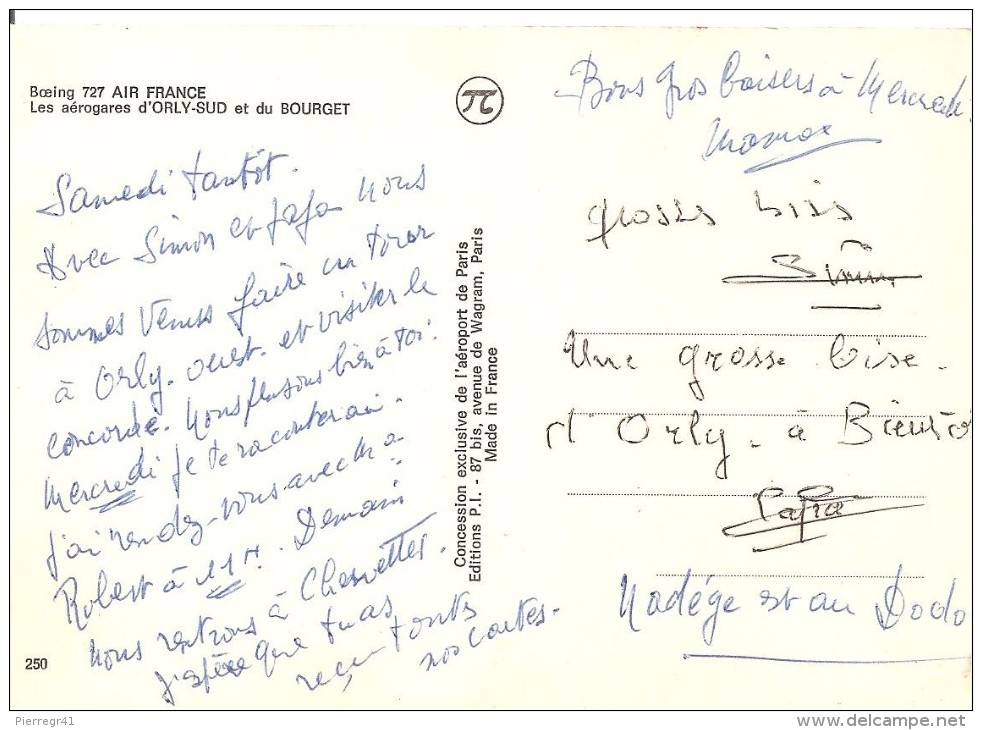 Bœing 727 AIR FRANCE
Les aérogares d'ORLY-SUD et du BOURGET
Samedi tantôt.
Avec Simon et Papa nous
sommes venus faire un tour
à Orly-ouest. et visiter le
concorde. Nous pensons bien à toi.
Mercredi je te raconterai.
j'ai rendez-vous avec
Robert à 11H. Demain
nous rentrons à
j'espère que tu as
reçu touts
nos cartes.
250
Concession exclusive de l'aéroport de Paris
Editions P.I. - 87 bis, avenue de Wagram, Paris
Made in France
Bons gros baisers à Mercredi.
Maman
grosses bises
Simon
Une grosse bise.
d'Orly. à Bientôt
Papa
Nadége est au Dodo
Pierregr41
www.delcampe.net